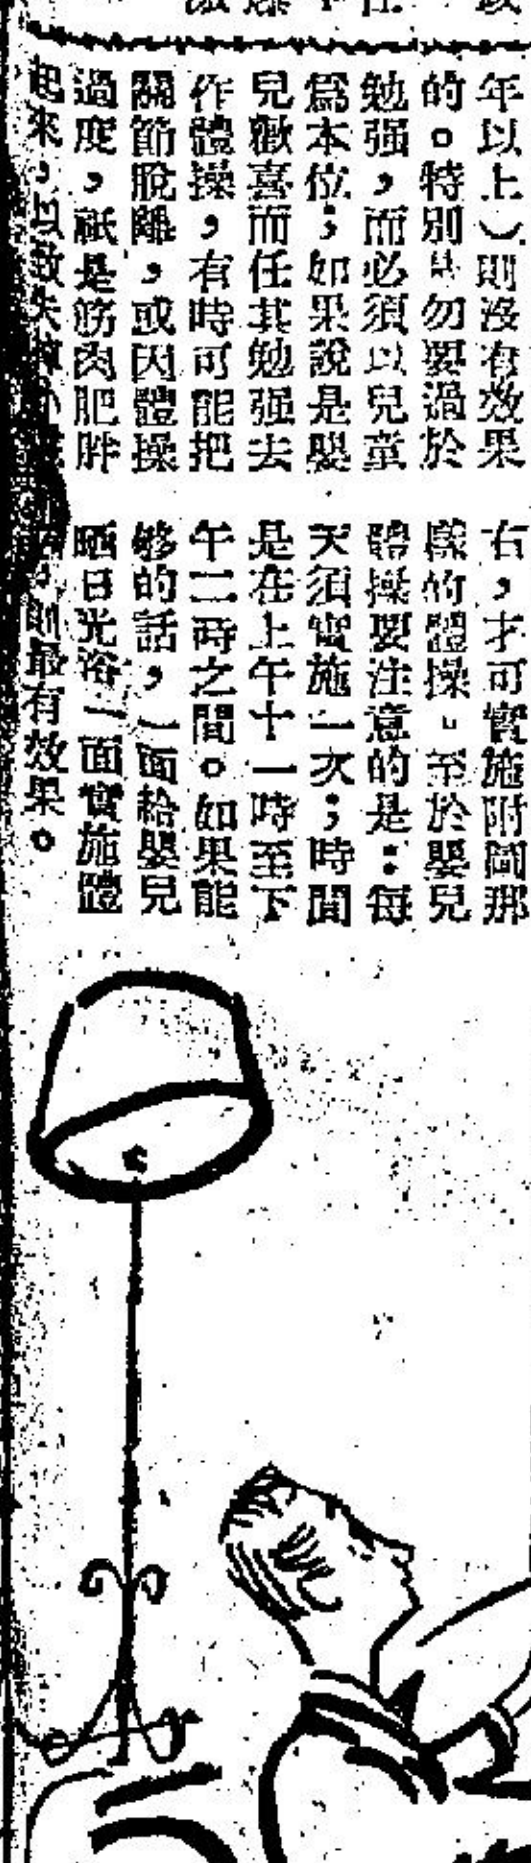 年以上）則沒有效果
的。特別　勿要過於
勉强，而必須以兒童
爲本位；如果說是嬰
兒歡喜而任其勉强去
作體操，有時可能把
關節脫離，或因體操
過度，祇是筋肉肥胖
起來，以致失
右，才可實施附圖那
樣的體操。至於嬰兒
體操要注意的是：每
天須實施一次；時間
是在上午十一時至下
午二時之間。如果能
够的話，一面給嬰兒
晒日光浴一面實施體
，則最有效果。